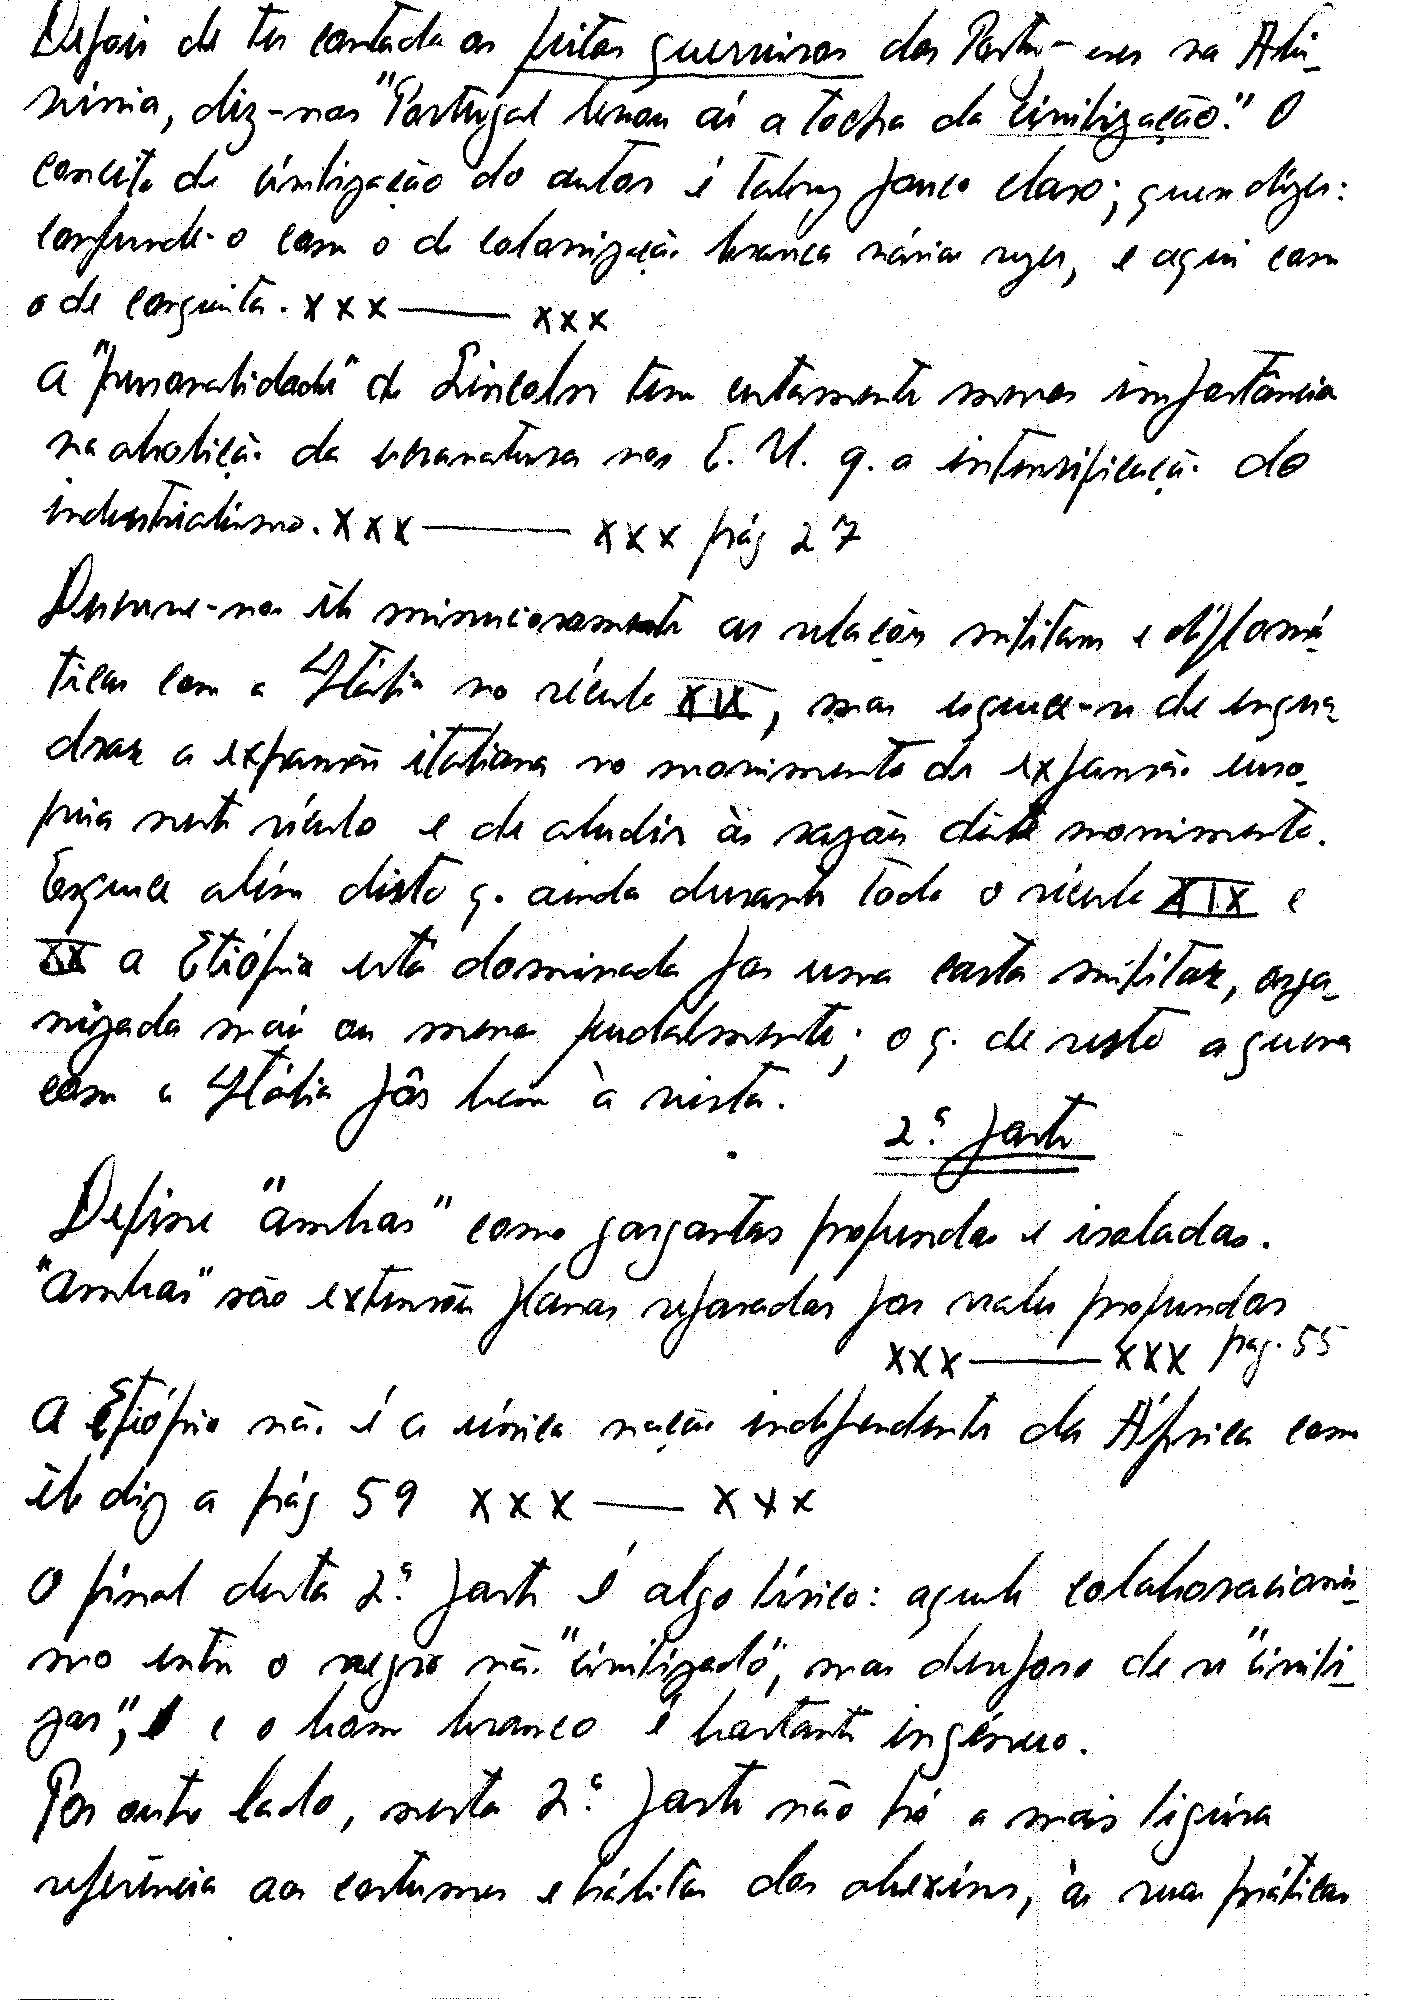 Depois de ter contado os feitos guerreiros dos Portu- eses na Abi-
ssínia, diz-nos "Portugal levou aí a tocha da civilização." O
conceito de civilização do autor é talvez pouco claro; quer dizer:
confunde-o com o de colonização branca várias vezes, e aqui com
o de conquista. xxx —— xxx
A "personalidade" de Lincoln tem certamente menos importância
na abolição da escravatura nos E. U. q. a intensificação do
industrialismo. xxx —— xxx pág 27
Descreve-nos êle minuciosamente as relações militares e diplomá-
ticas com a Itália no século XIX, mas esquece-se de enqua-
drar a expansão italiana no movimento de expansão euro-
peia neste século e de aludir às razões dêste movimento.
Esquece além disto q. ainda durante todo o século XIX e
XX a Etiópia está dominada por uma casta militar, orga-
nizada mais ou menos feudalmente; o q. de resto a guerra
com a Itália pôs bem à vista.
2.ª parte
Define "ambas" como gargantas profundas e isoladas.
"Ambas" são extensões planas separadas por vales profundos
xxx —— xxx pag. 55
A Etiópia não é a única nação independente da África como
êle diz a pág 59 xxx —— xxx
O final desta 2.ª parte é algo lírico: aquele colaboracionis-
mo entre o negro não "civilizado", mas desejoso de se "civili-
zar", e o bom branco é bastante ingénuo.
Por outro lado, nesta 2.ª parte não há a mais ligeira
referência aos costumes e hábitos dos abexins, às suas práticas